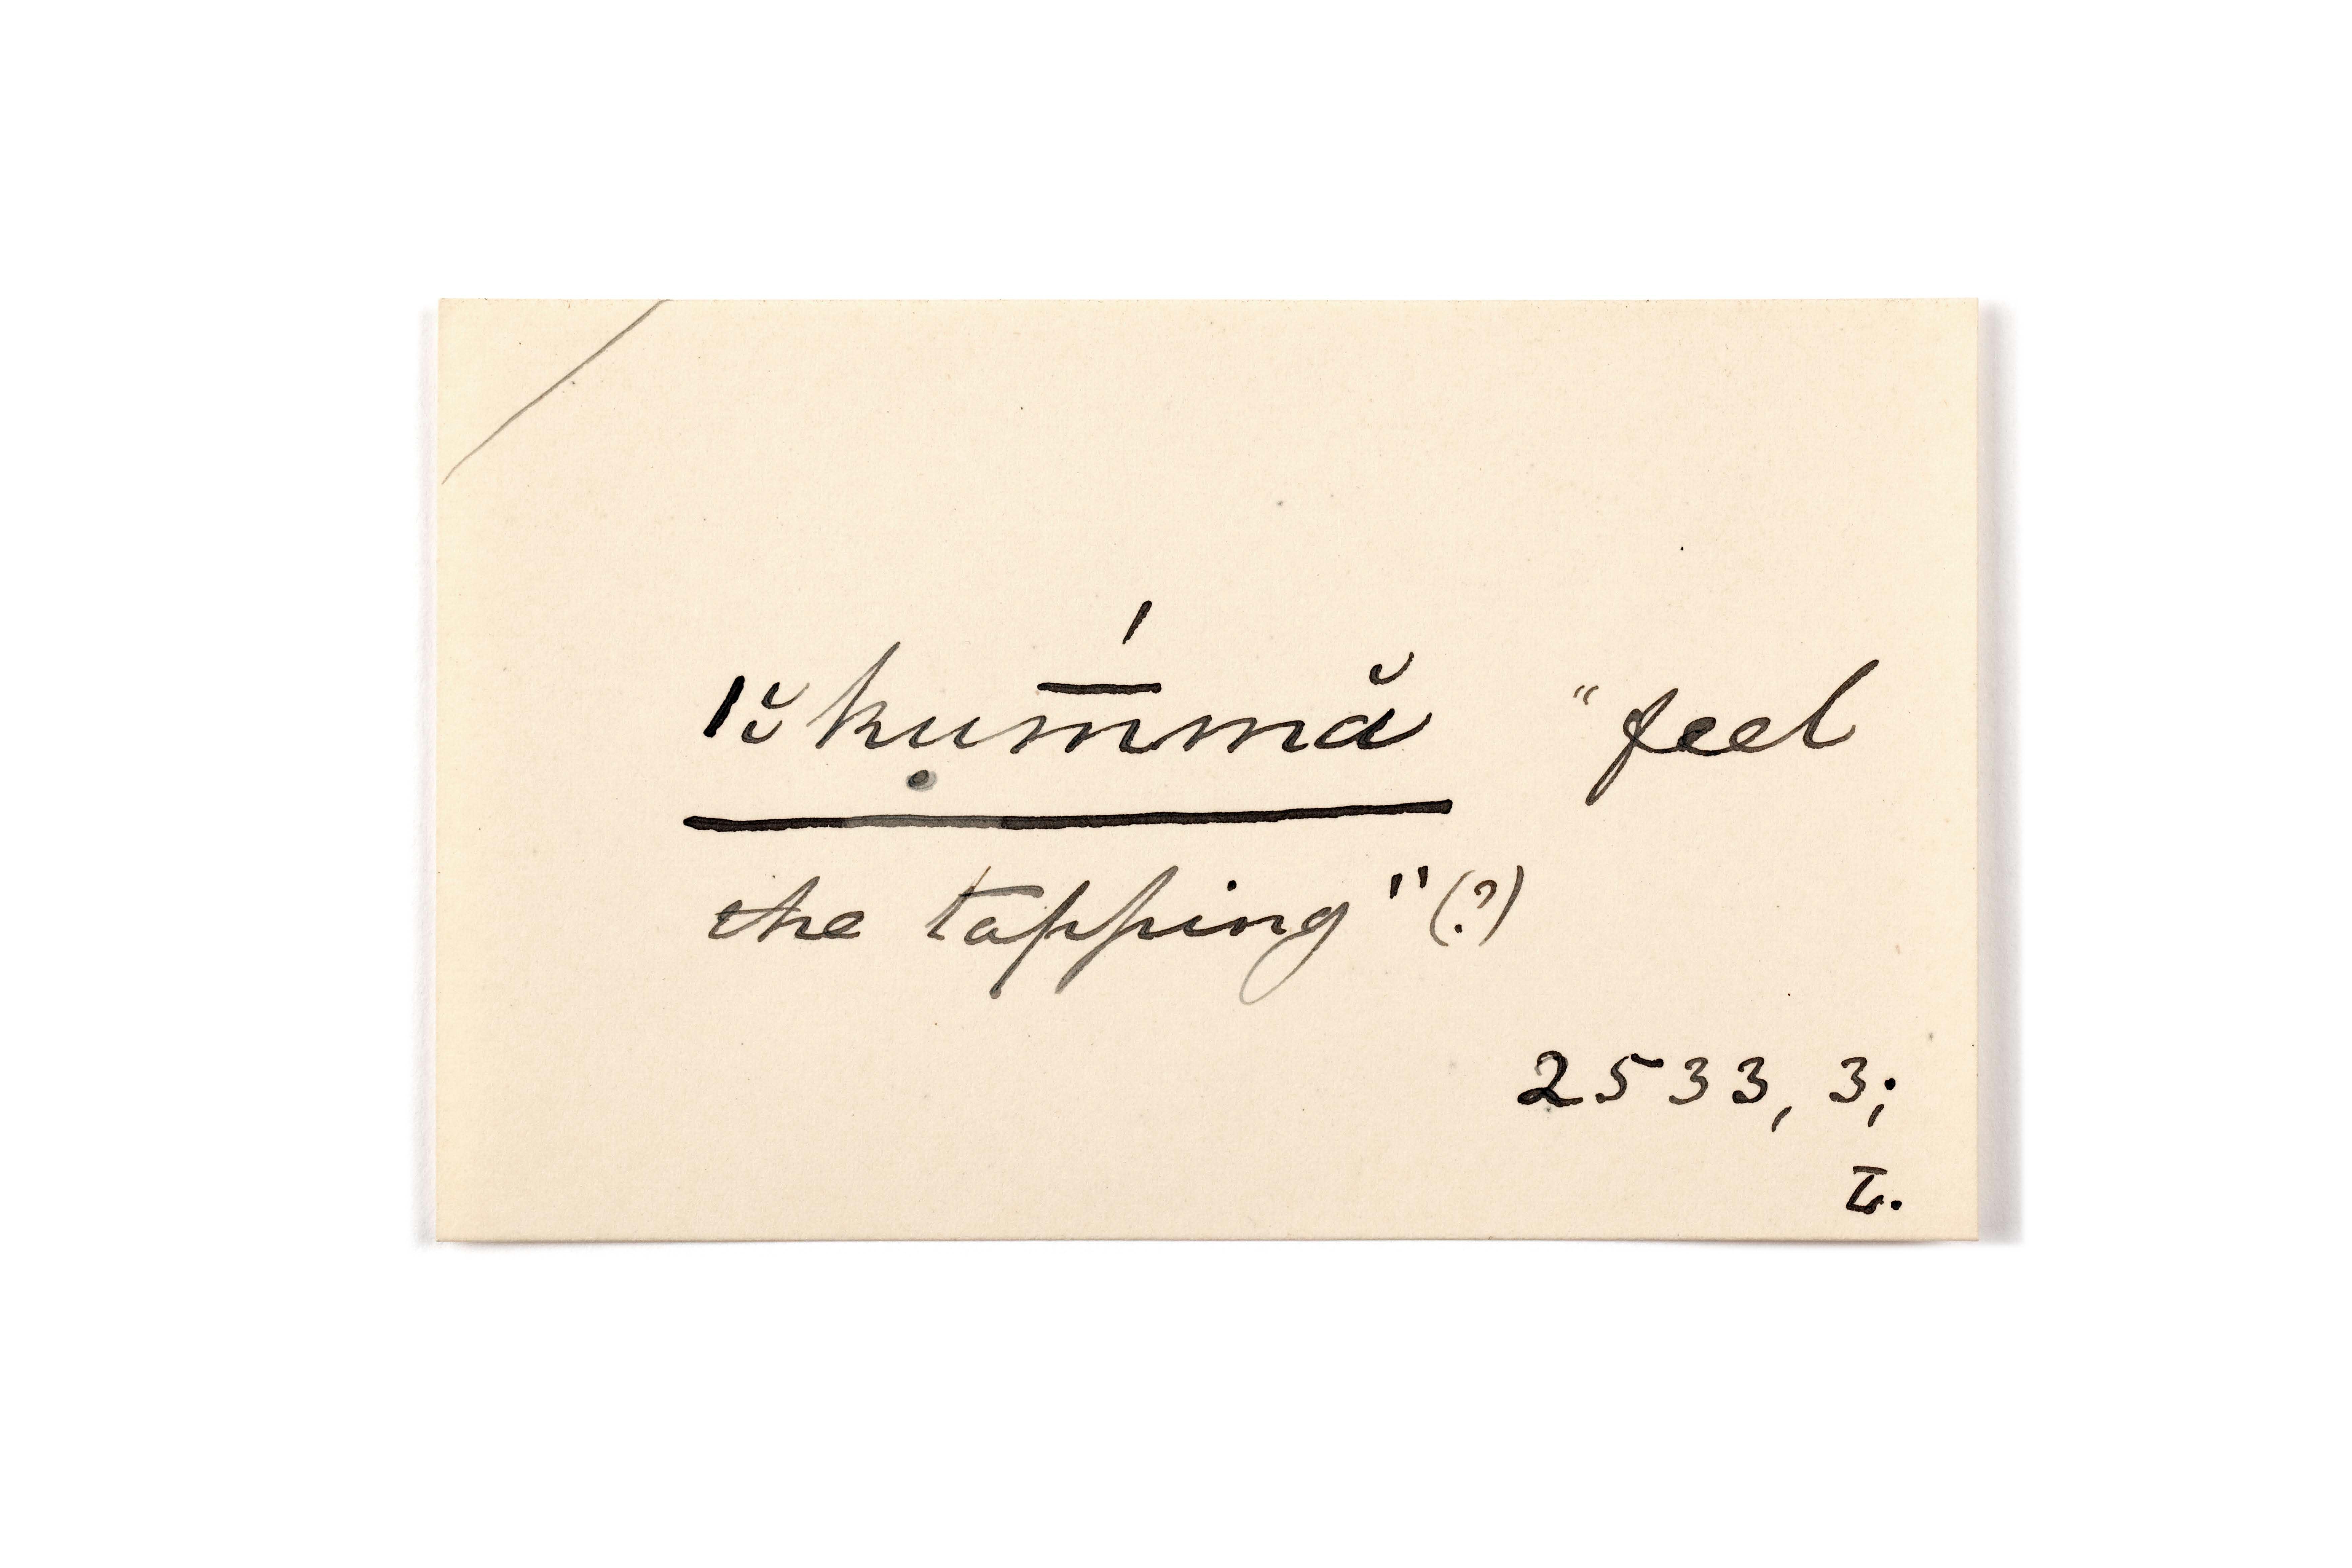 ĭkụm̄́mă "feel
the tapping" (?)
2533, 3;